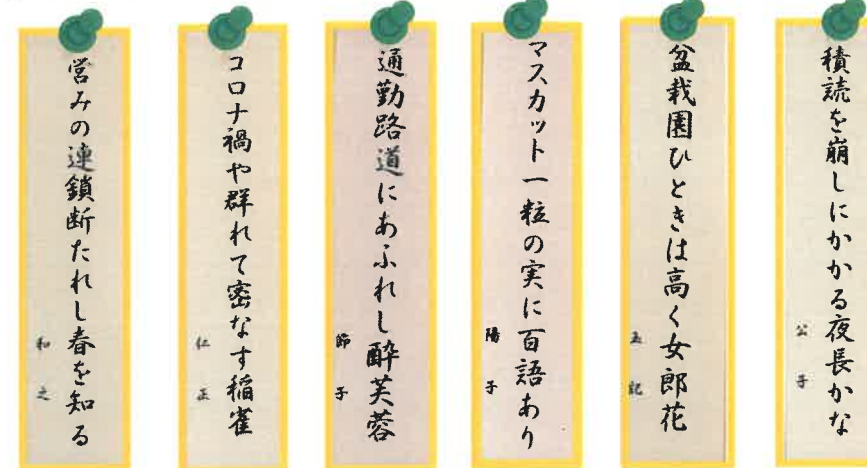 積読を崩しにかかる夜長かな
公子
盆栽園ひときは高く女郎花
マスカット一粒の実に百語あり
陽子
通勤路道にあふれし酔芙蓉
節子
コロナ禍や群れて密なす稲雀
仁正
営みの連鎖断たれし春を知る
和之